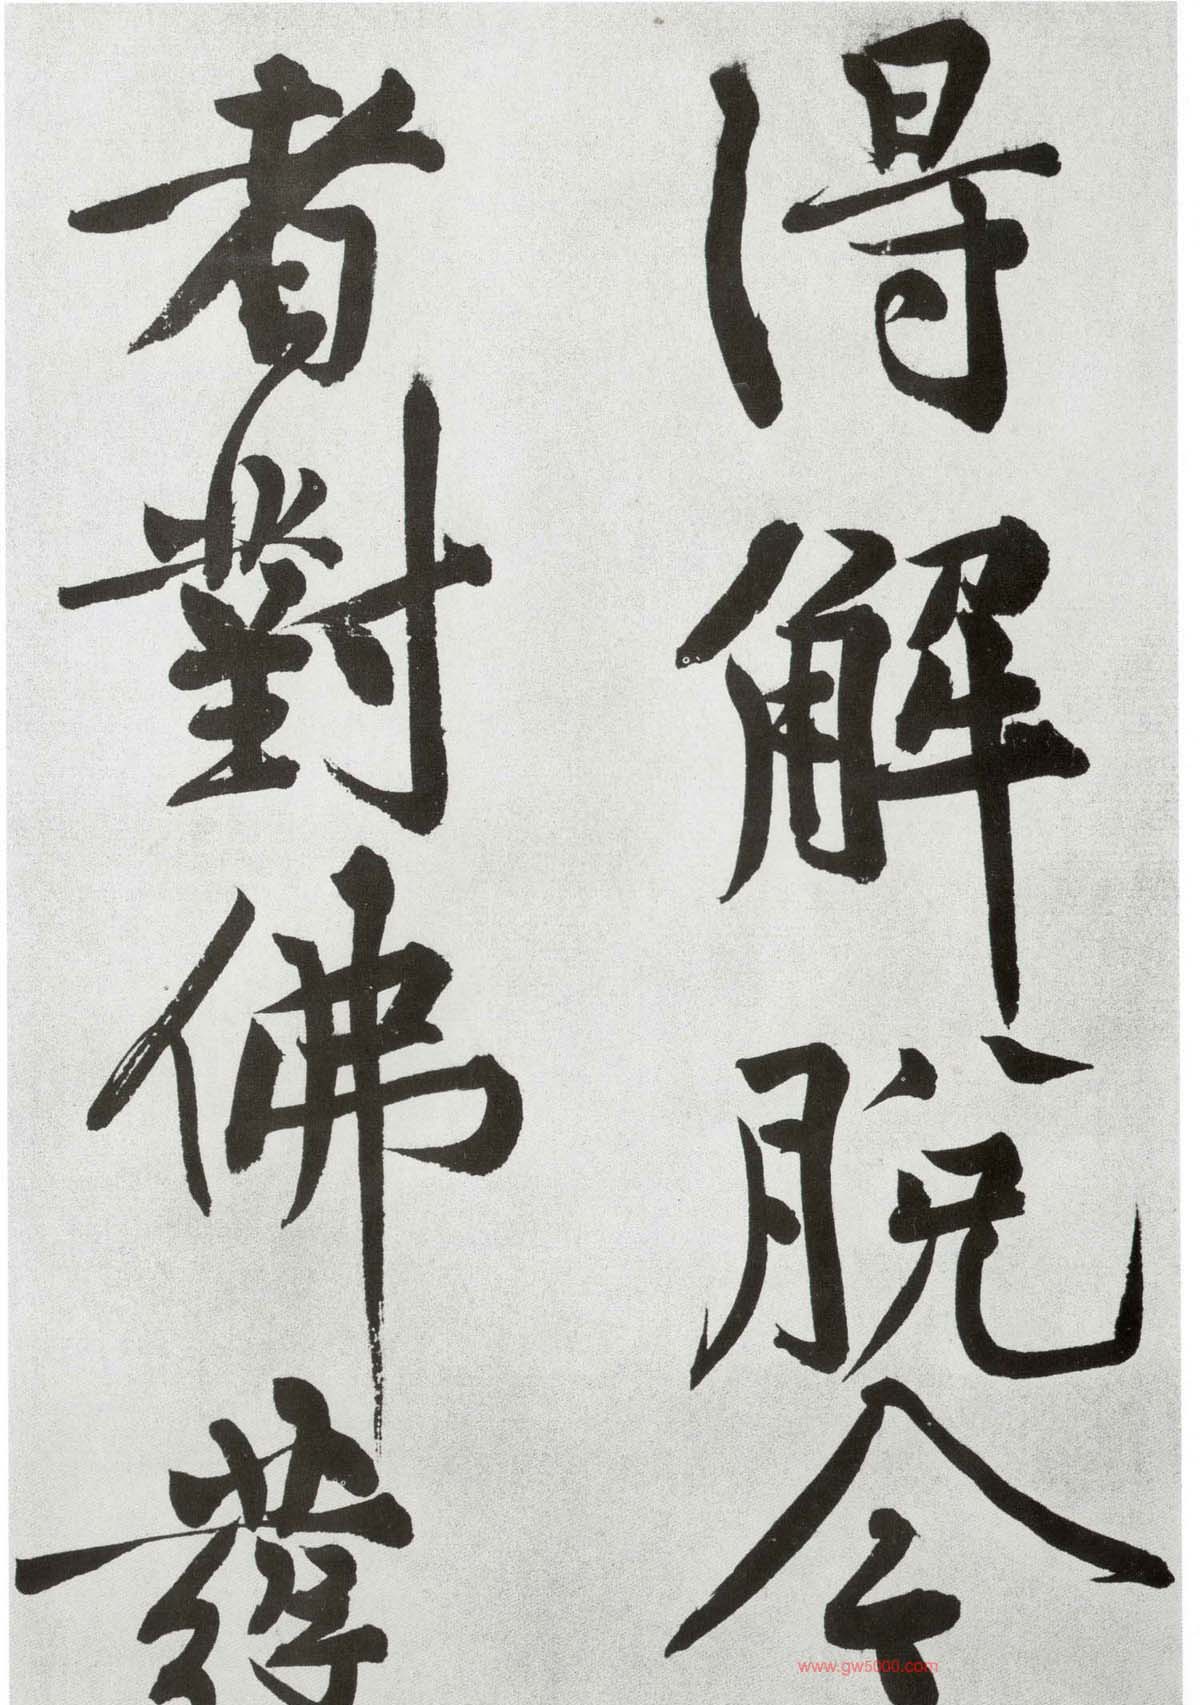 得解脫今
者對佛發
www.gw5000.com